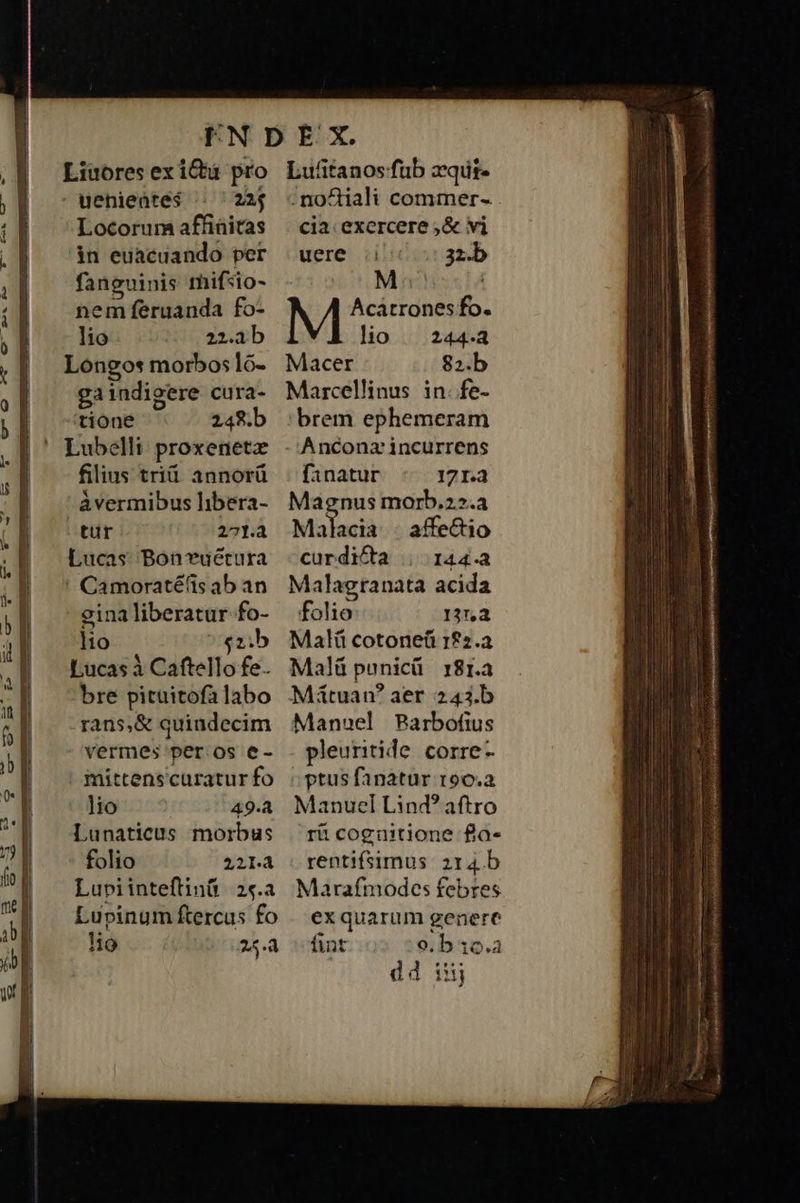 INDEX.
Liuores ex ictu pro
uenientes 225
Locorum affinitas
in euacuando per
sanguinis mißio-
nem seruanda fo-
lio 22.ab
Longos morbos lō-
ga indigere cura-
tione 248.b
Lubelli proxenetæ
filius triū annorū
à vermibus libera-
tur 271.a
Lucas Bonvuētura
Camoratēsis ab an
gina liberatur fo-
lio 52.b
Lucas à Castello fe-
bre pituitosa labo
rans,& quindecim
vermes per os e-
mittens curatur fo
lio 49.a
Lunaticus morbus
folio 221.a
Lupi intestinū 25.a
Lupinum stercus fo
lio 25.a
Lusitanos sub æqui-
noctiali commer-
cia exercere,& vi
uere 32.b
M
Macatrones fo.
lio 244.a
Macer 82.b
Marcellinus in fe-
brem ephemeram
Anconæ incurrens
sanatur 171.a
Magnus morb.22.a
Malacia affectio
cur dicta 144.a
Malagranata acida
folio 131.a
Malū cotoneū 182.a
Malū punicū 181.a
Mātuan⁹ aer 243.b
Manuel Barbosius
pleuritide corre-
ptus sanatur 190.a
Manuel Lind⁹ astro
rū cognitione flo-
rentißimus 214.b
Marasmodes febres
ex quarum genere
sint 9.b 10.a
dd iiij